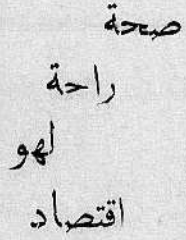 صحة
راحة
لهو
اقتصاد